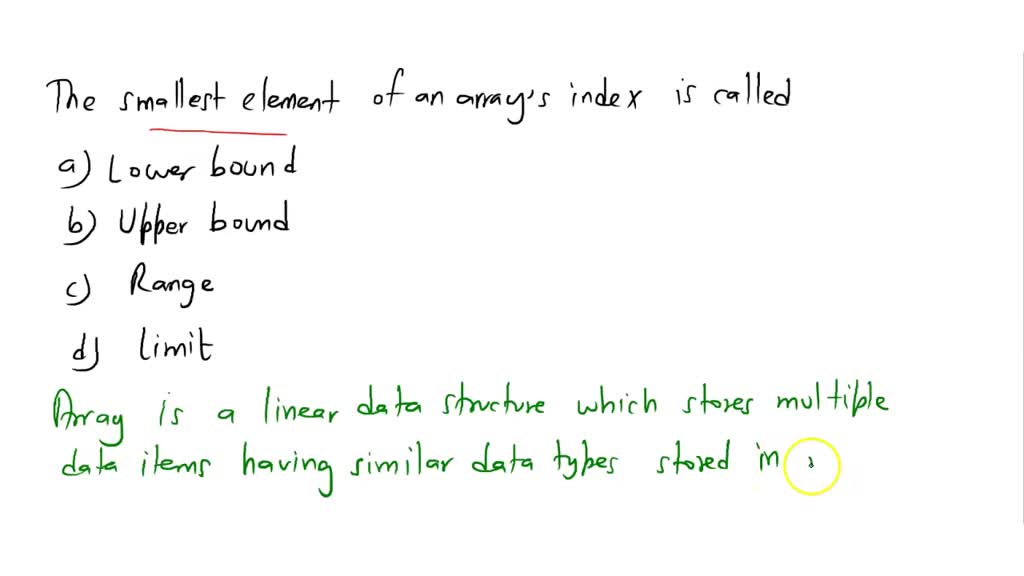 The smallest element of an array's index is called
a) Lower bound
b) Upper bound
c) Range
d) limit
Array is a linear data structure which stores multiple
data items having similar data types stored in